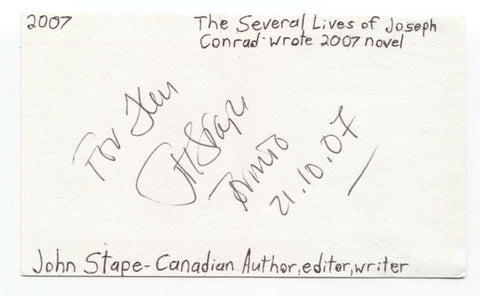 2007
The Several Lives of Joseph
Conrad-wrote 2007 novel
For Ken
JH Stape
Toronto
21.10.07
John Stape-Canadian Author,editor,writer